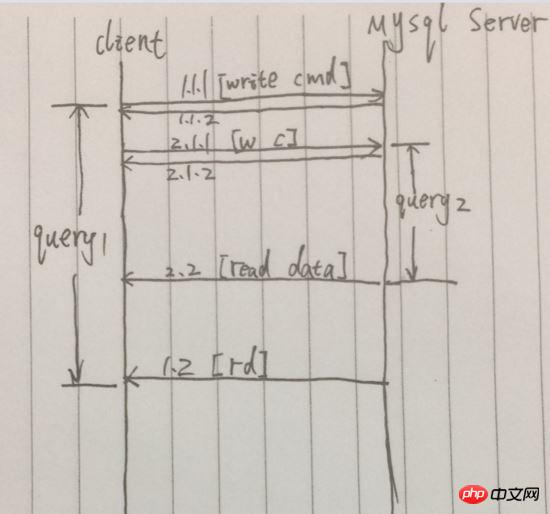 client
Mysql Server
1.1.1 [write cmd]
1.1.2
2.1.1 [w c]
2.1.2
query1
query2
2.2 [read data]
1.2 [rd]
php 中文网